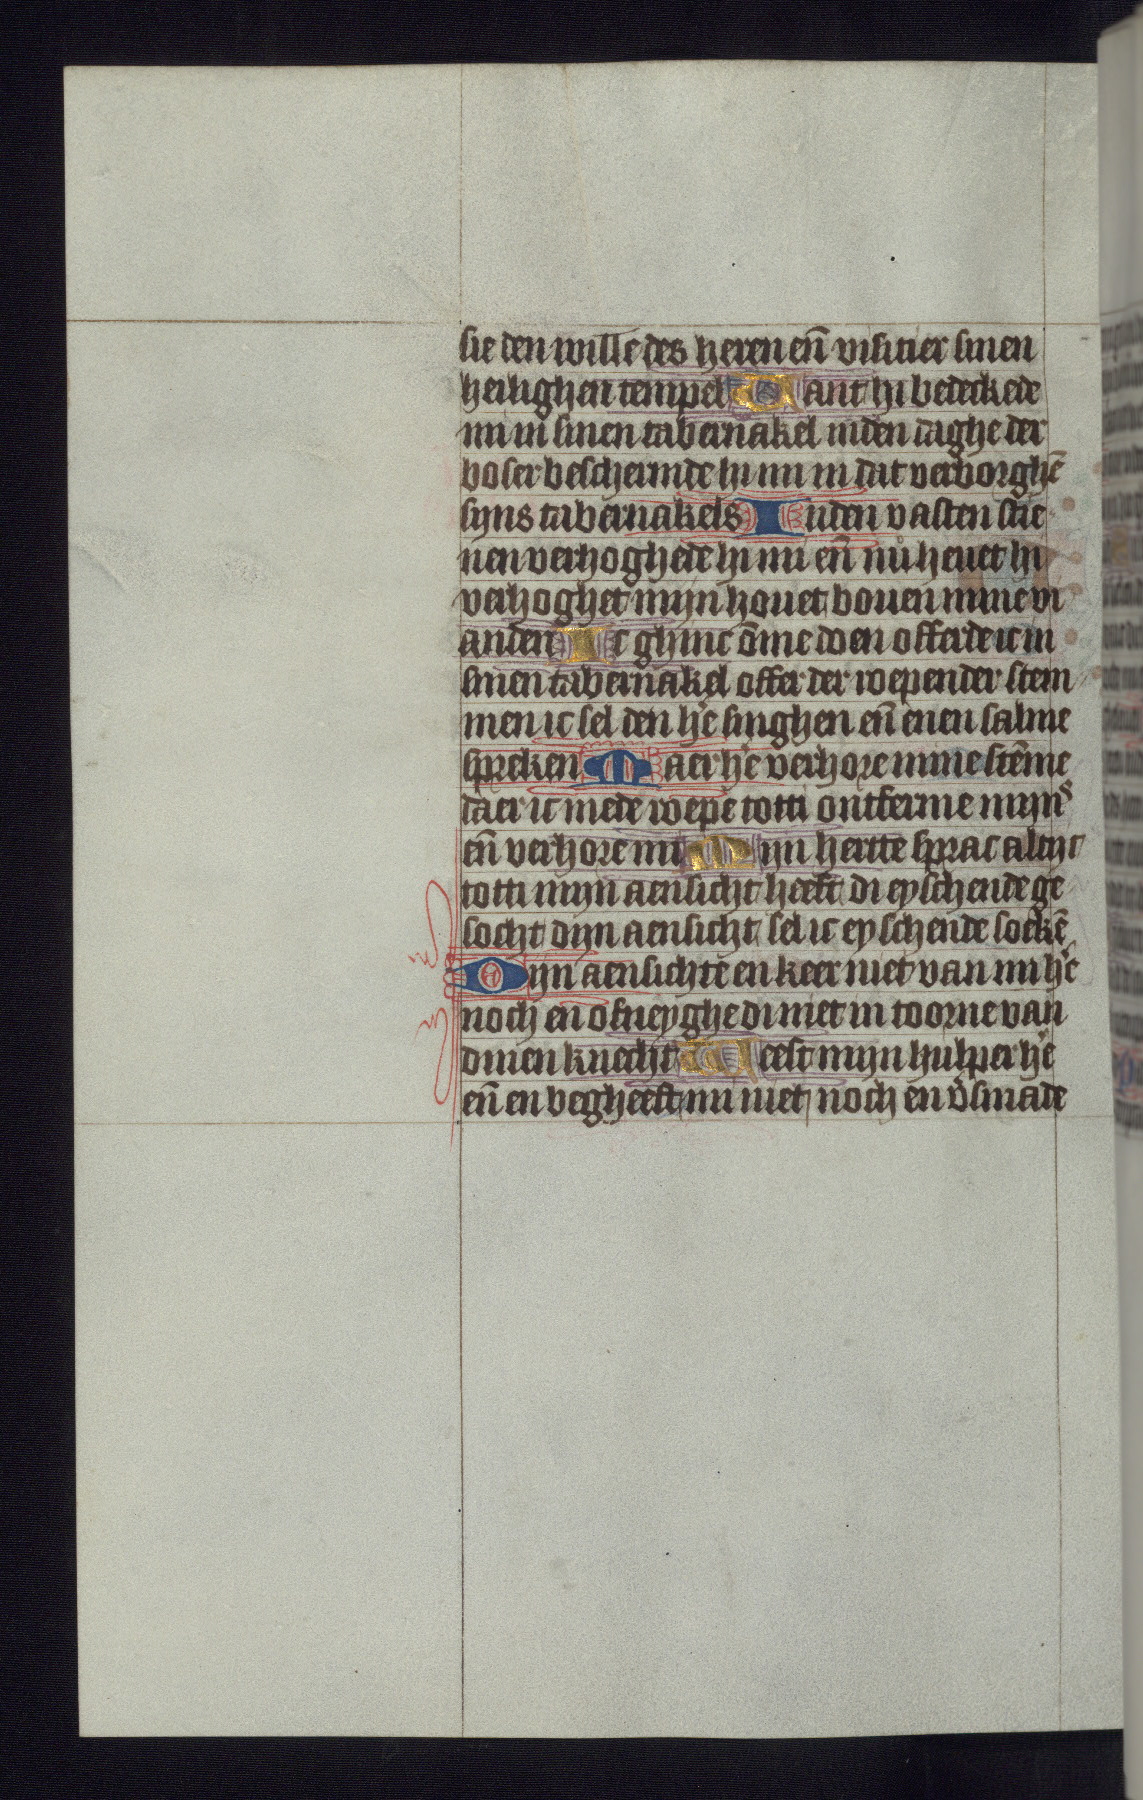 sie den wille des heren en̄ visitier sinen
heilighen tempel Want hi bedeckede
mi in sinen tabernakel inden daghe der
boser beschermde hi mi in dat verborghē
syns tabernakels Inden vasten stie
nen verhoghede hi mi en̄ nu heuet hi
verhoghet mijn houet bouen mine vi
anden Ic ghinc ōme doen offerde ic in
sinen tabernakel offer der roepender stem
men ic sel den he singhen en̄ enen salme
spreken Maer he verhore mine stēme
daer ic mede roepe totti ontferme mijns
en̄ verhore mi Mijn hertte sprac alcht
totti mijn aensicht heeft di eyschende ge
socht dijn aensicht sel ic eyschende soekē
Dijn aensichte en keer niet van mi he
noch en ofneyghe di niet in toorne van
dinen knecht Weest mijn hulper he
en̄ en begheeft mi niet noch en v̓smade